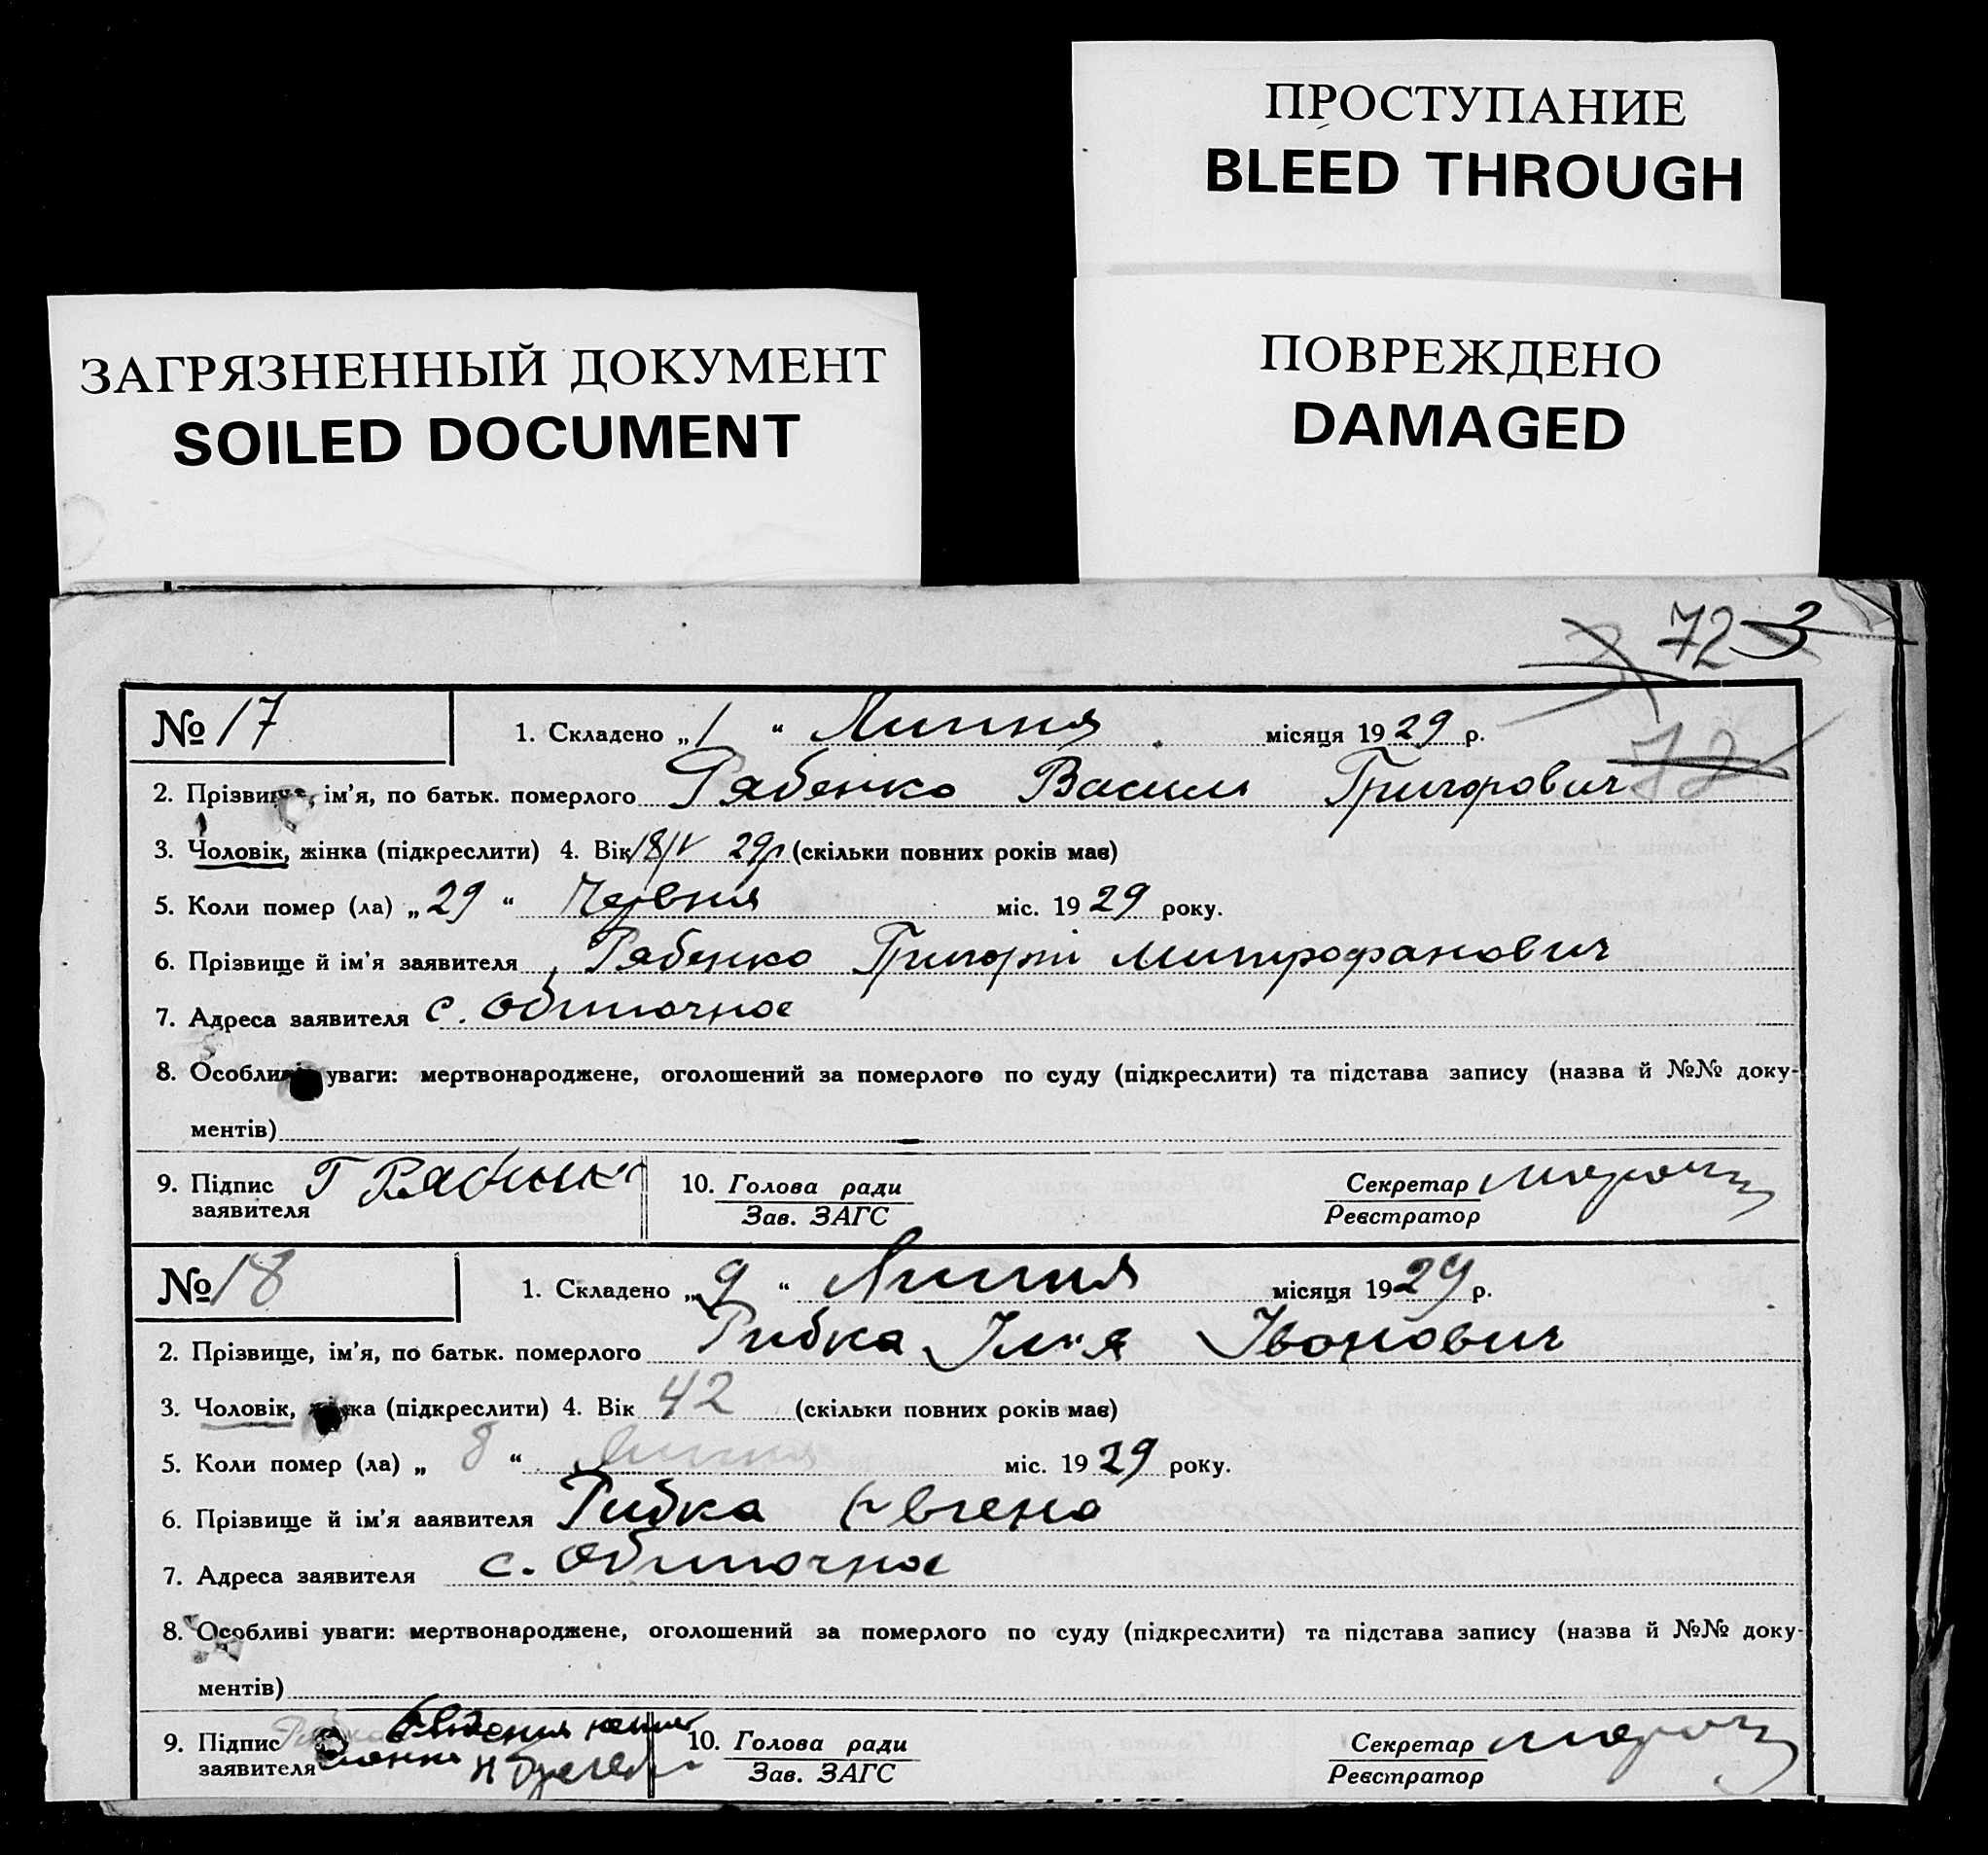 ПРОСТУПАНИЕ
BLEED THROUGH
ЗАГРЯЗНЕННЫЙ ДОКУМЕНТ
SOILED DOCUMENT
ПОВРЕЖДЕНО
DAMAGED
72 3
72
№ 17 1. Складено „1“ Липня місяця 1929 р.
2. Прізвище, ім'я, по батьк. померлого Рябенко Василь Григорович
3. Чоловік, жінка (підкреслити) 4. Вік 18/IV 29р (скільки повних років має)
5. Коли помер (ла) „29“ Червня міс. 1929 року.
6. Прізвище й ім'я заявителя Рябенко Григорій Митрофанович
7. Адреса заявителя с. Одиночное
8. Особливі уваги: мертвонароджене, оголошений за померлого по суду (підкреслити) та підстава запису (назва й №№ доку-
ментів)
9. Підпис Г Рябенко 10. Голова ради Секретар
заявителя Зав. ЗАГС Реєстратор
№ 18 1. Складено „9“ Липня місяця 1929 р.
2. Прізвище, ім'я, по батьк. померлого Рибка Ілля Іванович
3. Чоловік, жінка (підкреслити) 4. Вік 42 (скільки повних років має)
5. Коли помер (ла) „8“ Липня міс. 1929 року.
6. Прізвище й ім'я заявителя Рибка Євгена
7. Адреса заявителя с. Одиночное
8. Особливі уваги: мертвонароджене, оголошений за померлого по суду (підкреслити) та підстава запису (назва й №№ доку-
ментів)
9. Підпис Рибка 10. Голова ради Секретар
заявителя Зав. ЗАГС Реєстратор